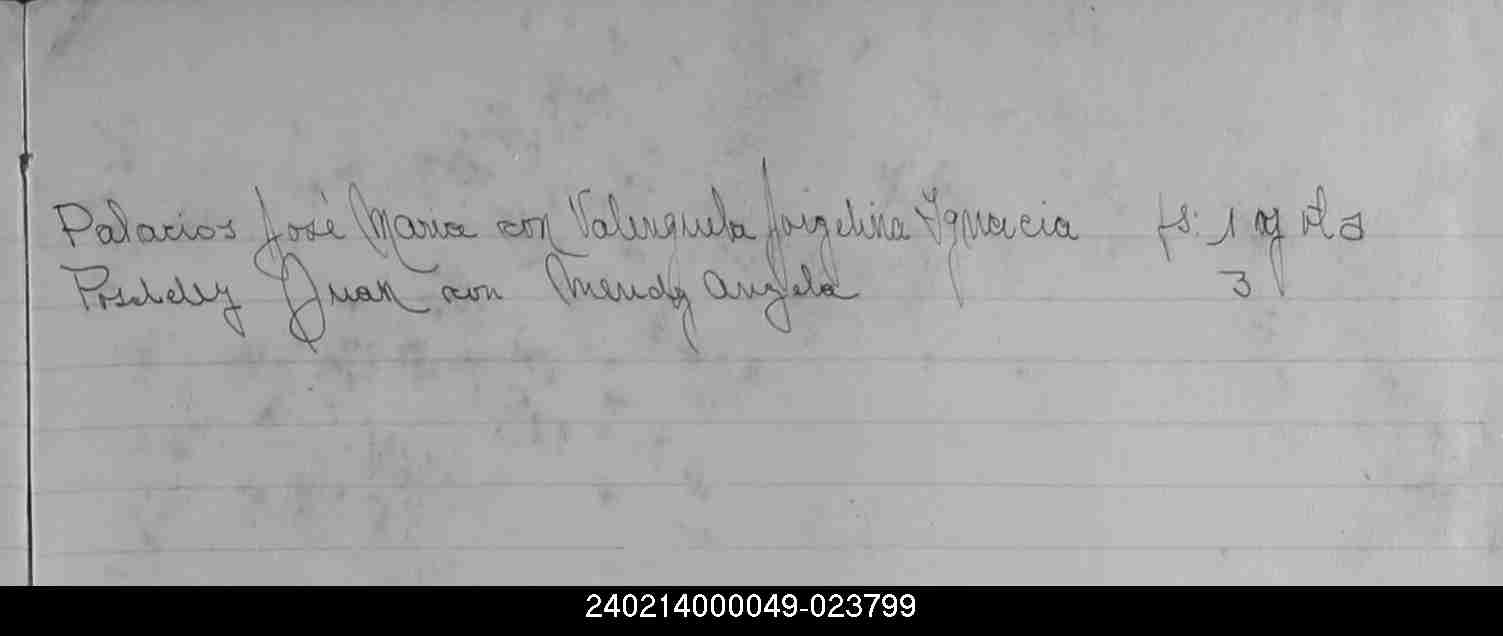 Palacios José Maria con Valenzuela Jorgelina Ignacia fs: 1 y vta
Juan con Mendez Angela 3
240214000049-023799